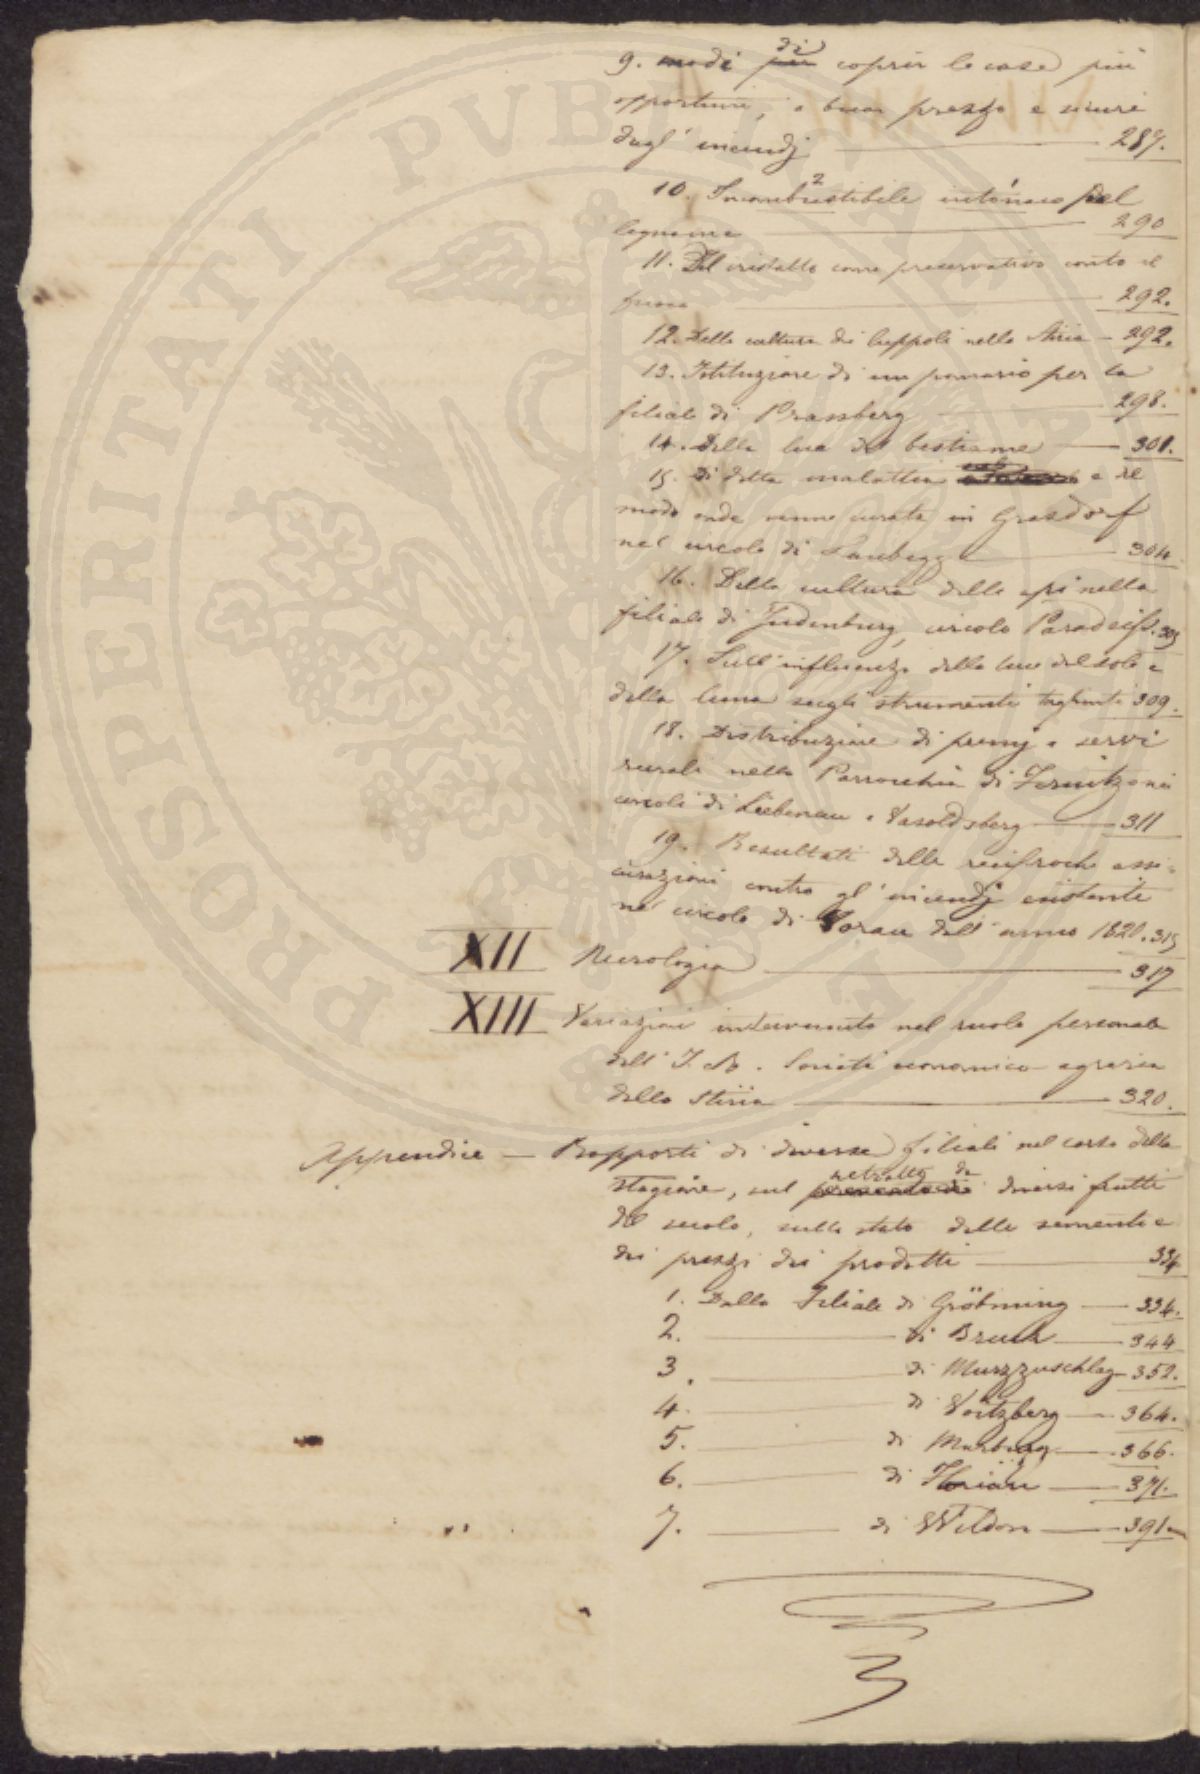 9. modi di coprir le case più
opportuni, a buon prezzo e sicuri
dagl' incendj 287.
10. Incombustibile intonaco pel
legname 290
11. Del cristallo come preservativo contro il
fuoco 292.
12. Della coltura di luppoli nella Stiria - 292.
13. Istituzione di un pomario per la
filiale di Prassberg 298.
14. Della lue del bestiame 301.
15. Di detta malattia e il
modo onde venne curata in Grasdorf
nel circolo di 304
16. Della cultura delle api nella
filiale di Judenburg, circolo Paradeiss. 305
17. Sull' influenza della luce del sole e
della luna sugli strumenti taglienti 309.
18. Distribuzione di premj a servi
rurali nella Parrocchia di Fernitz o nei
circoli di Liebenau e Vasoldsberg 311
19. Resultati delle reciproche assi-
curazioni contro gl' incendj esistenti
nel circolo di Vorau dell' anno 1820. 315
XII Necrologia 317
XIII Variazioni intervenute nel ruolo personale
dell' I. R. Società economico-agraria
della Stiria 320.
Appendice — Rapporti di diverse filiali nel corso della
stagione, sul retratto da diversi frutti
del secolo, sullo stato delle sementi e
dei prezzi dei prodotti 334
1. Dalla Filiale di Gröbming 334.
2. di Bruck 344
3. di Murzzuschlag 352.
4. di Voitzberg 364.
5. di Marburg 366.
6. di Florian 371.
7. di Wildon 391.
PROSPERITATI PVBLICAE